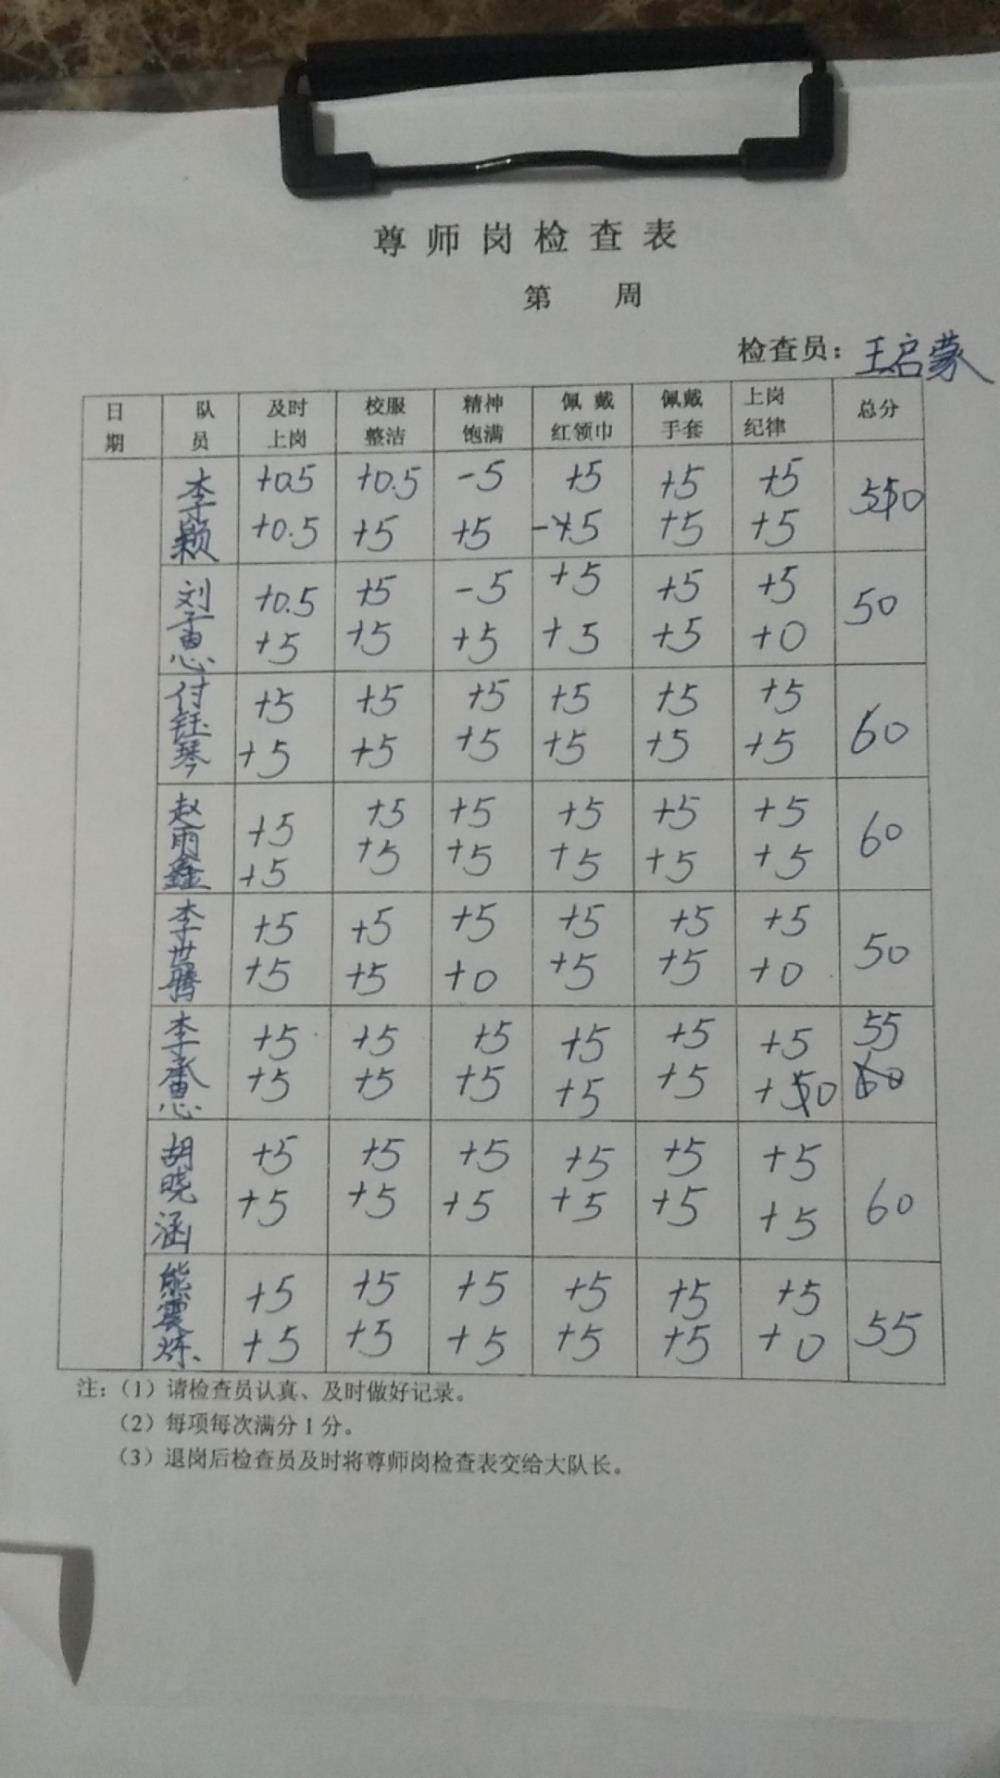 尊师岗检查表
第 周
检查员：王启蒙
日期 队员 及时上岗 校服整洁 精神饱满 佩戴红领巾 佩戴手套 上岗纪律 总分
李颖 +0.5 +0.5 -5 +5 +5 +5
+0.5 +5 +5 +5 +5
刘子惠 +0.5 +5 -5 +5 +5 +5 50
+5 +5 +5 +5 +5 +0
付钰琴 +5 +5 +5 +5 +5 +5 60
+5 +5 +5 +5 +5 +5
赵雨鑫 +5 +5 +5 +5 +5 +5 60
+5 +5 +5 +5 +5 +5
李世腾 +5 +5 +5 +5 +5 +5 50
+5 +5 +0 +5 +5 +0
李承惠 +5 +5 +5 +5 +5 +5 55
+5 +5 +5 +5 +5 +0 60
胡晓涵 +5 +5 +5 +5 +5 +5 60
+5 +5 +5 +5 +5 +5
熊震炼 +5 +5 +5 +5 +5 +5 55
+5 +5 +5 +5 +5 +0
注：（1）请检查员认真、及时做好记录。
（2）每项每次满分1分。
（3）退岗后检查员及时将尊师岗检查表交给大队长。